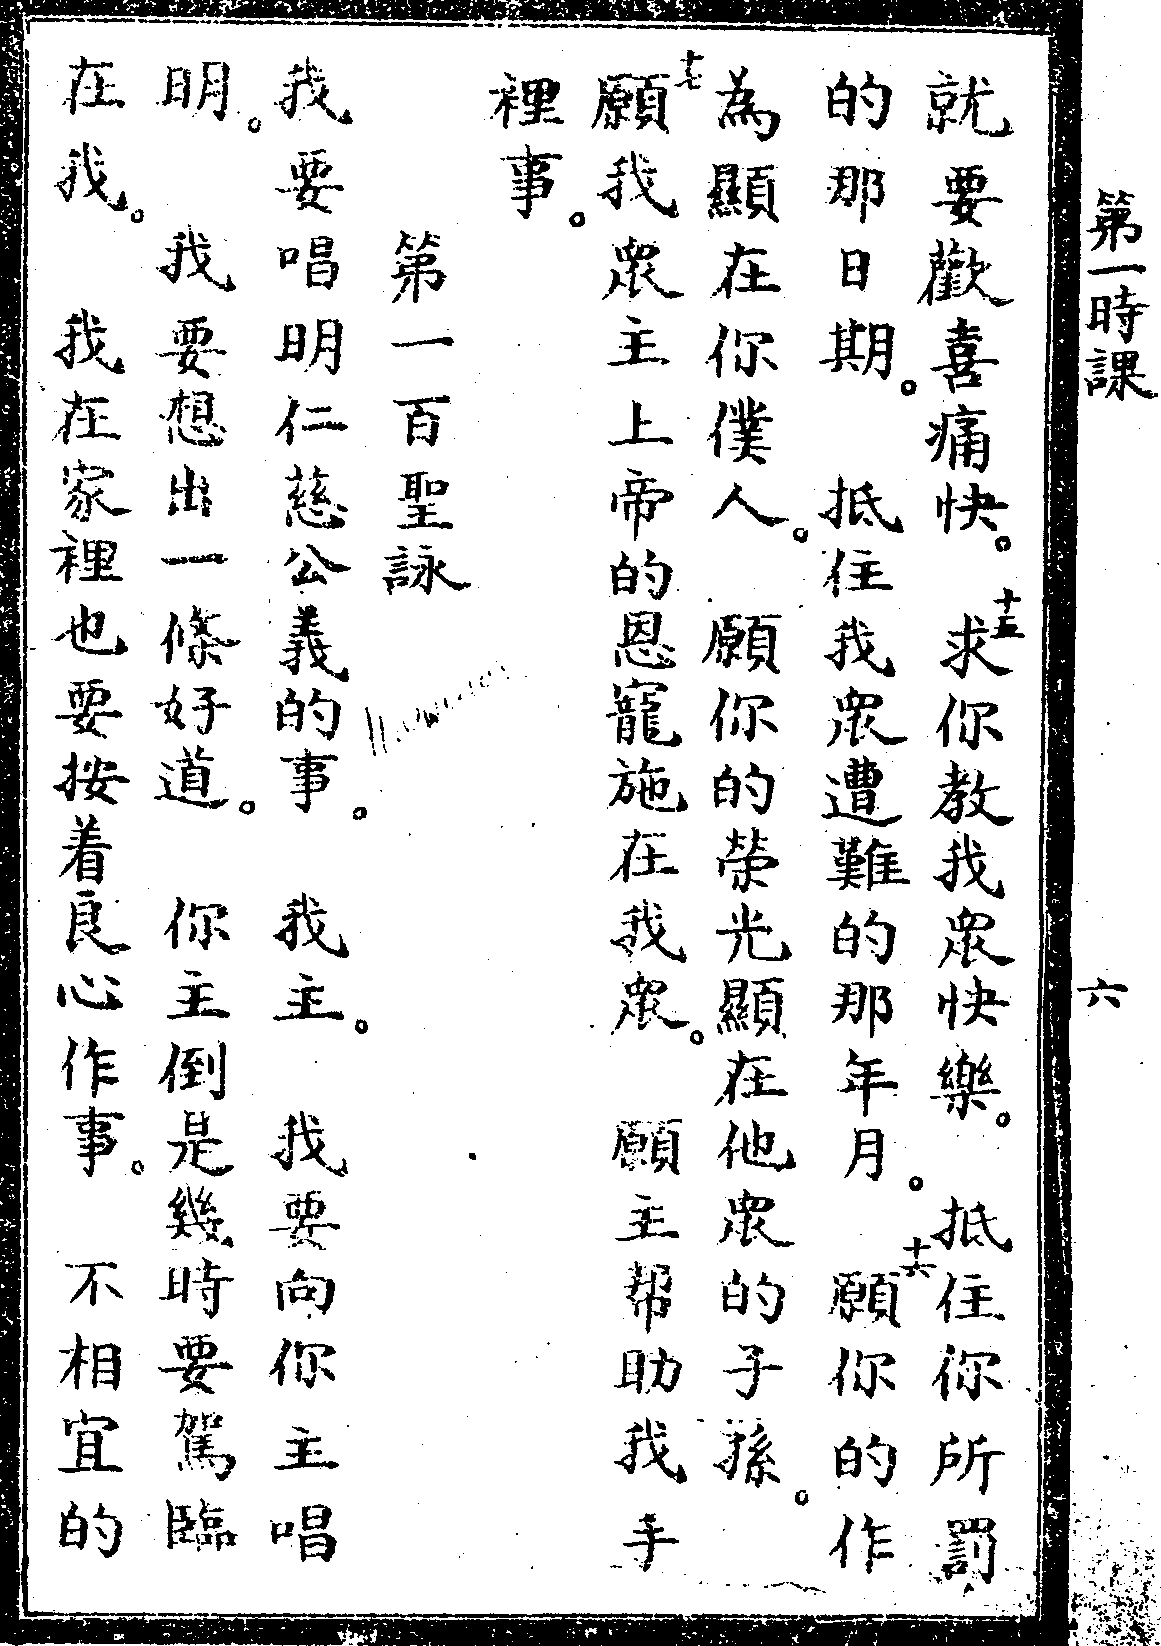 第一時課 六
就要歡喜痛快。十五求你教我衆快樂。抵住你所罰
的那日期。抵住我衆遭難的那年月。十六願你的作
為顯在你僕人。願你的榮光顯在他衆的子孫。
十七願我衆主上帝的恩寵施在我衆。願主帮助我手
裡事。
第一百聖詠
我要唱明仁慈公義的事。我主。我要向你主唱
明。我要想出一條好道。你主倒是幾時要駕臨
在我。我在家裡也要按着良心作事。不相宜的